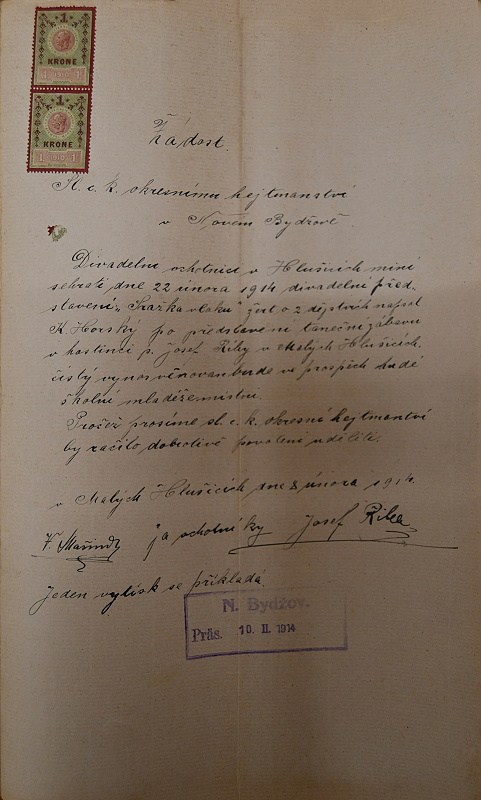 1
KRONE
1
KRONE
Žádost.
Sl. c. k. okresnímu hejtmanství
v Novém Bydžově
Divadelní ochotníci v Hlušicích míní
sehráti dne 22 února 1914 divadelní před
stavení „Srážka vlaků" žert o 2 dějstvích napsal
K. Horský po představení taneční zábavu
v hostinci p. Josef Říhy v Malých Hlušicích,
čistý výnos věnovan bude ve prospěch chudé
školní mládeže místní.
Pročež prosíme sl. c. k. okresní hejtmantví
by račilo dobrotivě povolení uděliti.
v Malých Hlušicích dne 8 února 1914.
V. za ochotníky Josef Říha
Jeden výtisk se příkládá.
N. Bydžov.
Präs. 10. II. 1914